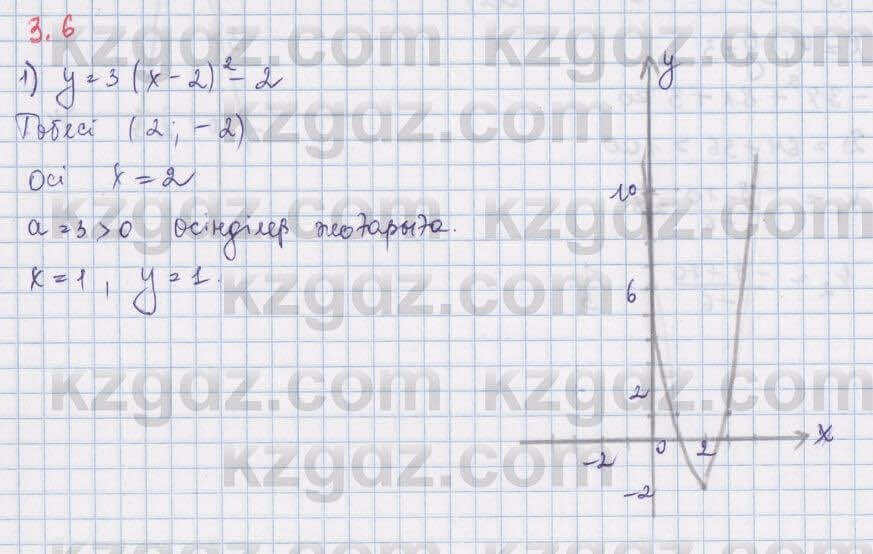 3.6
1) y = 3 (x - 2)² - 2
Төбесі (2; -2)
Осі x = 2
a = 3 > 0 Өсінділер жоғарыға.
x = 1, y = 1.
y
10
6
2
-2 0 2 x
-2
kzgdz.com kzgdz.com
kzgdz.com
kzgdz.com kzgdz.com
kzgdz.com
kzgdz.com kzgdz.com
kzgdz.com